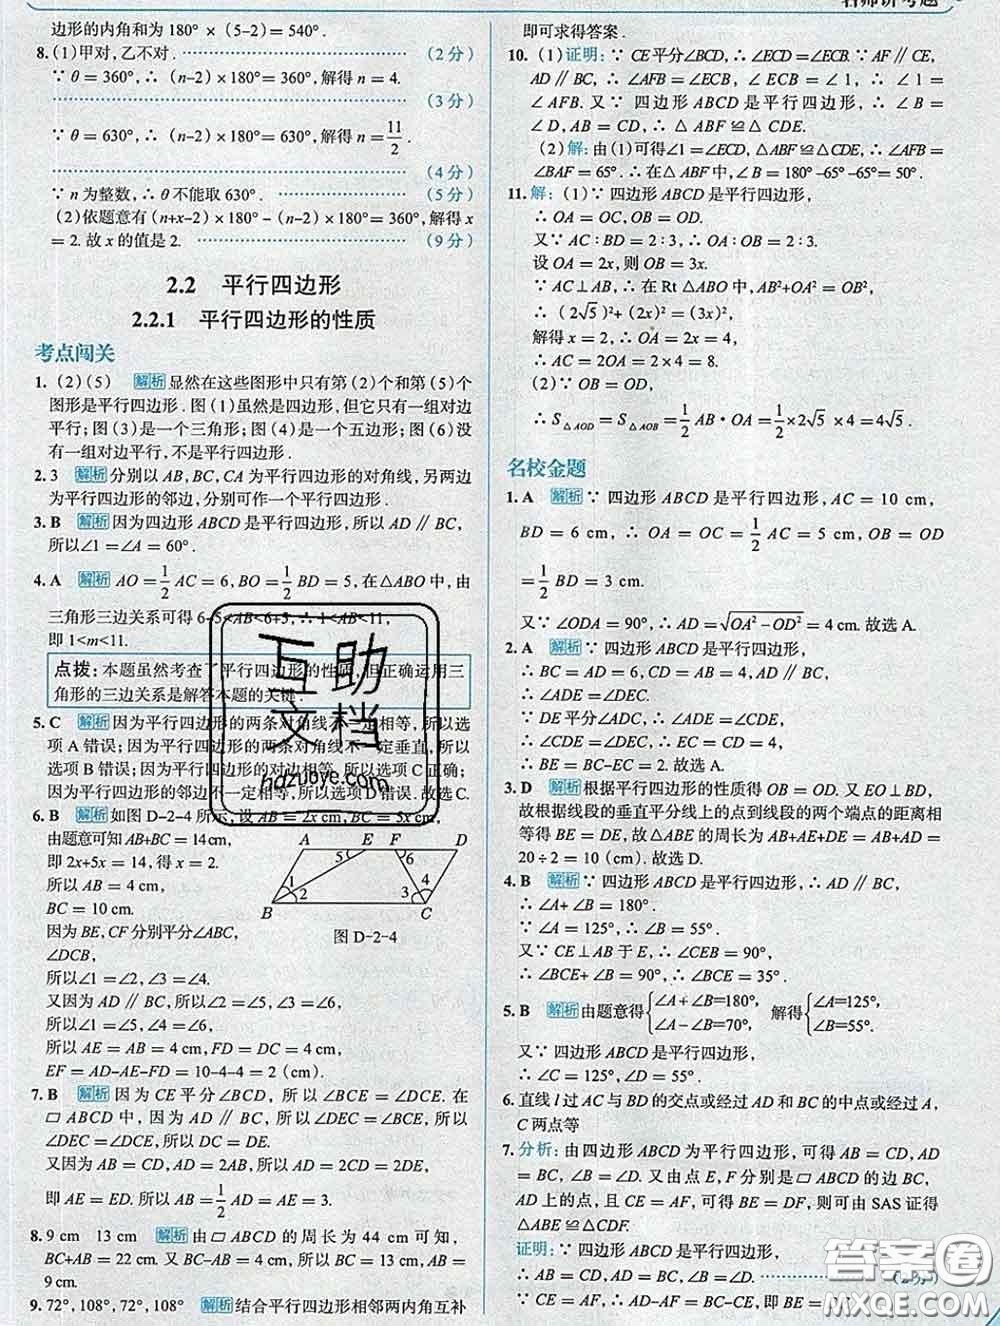 边形的内角和为180°×(5-2)=540°.
8.(1)甲对,乙不对. (2分)
∵θ=360°,∴(n-2)×180°=360°,解得n=4.
(3分)
∵θ=630°,∴(n-2)×180°=630°,解得n=11/2.
(4分)
∵n为整数,∴θ不能取630°. (5分)
(2)依题意有(n+x-2)×180°-(n-2)×180°=360°,解得x
=2.故x的值是2. (9分)
2.2 平行四边形
2.2.1 平行四边形的性质
考点闯关
1.(2)(5) 解析 显然在这些图形中只有第(2)个和第(5)个
图形是平行四边形.图(1)虽然是四边形,但它只有一组对边
平行;图(3)是一个三角形;图(4)是一个五边形;图(6)没
有一组对边平行,不是平行四边形.
2.3 解析 分别以AB,BC,CA为平行四边形的对角线,另两边
为平行四边形的邻边,分别可作一个平行四边形.
3.B 解析 因为四边形ABCD是平行四边形,所以AD∥BC,
所以∠1=∠A=60°.
4.A 解析 AO=1/2AC=6,BO=1/2BD=5,在△ABO中,由
三角形三边关系可得6-5<AB<6+5,∴1<AB<11,
即1<m<11.
点拨:本题虽然考查了平行四边形的性质,但正确运用三
角形的三边关系是解答本题的关键.
5.C 解析 因为平行四边形的两条对角线不一定相等,所以选
项A错误;因为平行四边形的两条对角线不一定垂直,所以
选项B错误;因为平行四边形的对边相等,所以选项C正确;
因为平行四边形的邻边不一定相等,所以选项D错误.故选C.
6.B 解析 如图D-2-4所示,设AB=2x cm,BC=5x cm,
由题意可知AB+BC=14cm,
即2x+5x=14,得x=2.
所以AB=4 cm,
BC=10 cm.
因为BE,CF分别平分∠ABC,
∠DCB,
所以∠1=∠2,∠3=∠4.
又因为AD∥BC,所以∠2=∠5,∠3=∠6,
所以∠1=∠5,∠4=∠6,
所以AE=AB=4 cm,FD=DC=4 cm,
EF=AD-AE-FD=10-4-4=2(cm).
A E F D
5 6
1 2 3 4
B C
图D-2-4
7.B 解析 因为CE平分∠BCD,所以∠BCE=∠DCE.在
▱ABCD中,因为AD∥BC,所以∠DEC=∠BCE,所以
∠DEC=∠DCE,所以DC=DE.
又因为AB=CD,AD=2AB,所以AD=2CD=2DE,
即AE=ED.所以AB=1/2AD=AE=3.
8.9 cm 13 cm 解析 由▱ABCD的周长为44 cm可知,
BC+AB=22 cm.又BC-AB=4 cm,所以BC=13 cm,AB=
9 cm.
9.72°,108°,72°,108° 解析 结合平行四边形相邻两内角互补
即可求得答案.
10.(1)证明:∵CE平分∠BCD,∴∠ECD=∠ECB.∵AF∥CE,
AD∥BC,∴∠AFB=∠ECB,∠ECB=∠1,∴∠1=
∠AFB.又∵四边形ABCD是平行四边形,∴∠B=
∠D,AB=CD,∴△ABF≌△CDE.
(2)解:由(1)可得∠1=∠ECD,△ABF≌△CDE,∴∠AFB=
∠BAF=65°.∴在△ABF中,∠B=180°-65°-65°=50°.
11.解:(1)∵四边形ABCD是平行四边形,
∴OA=OC,OB=OD.
又∵AC∶BD=2∶3,∴OA∶OB=2∶3.
设OA=2x,则OB=3x.
∵AC⊥AB,∴在Rt△ABO中,AB²+OA²=OB²,
∴(2√5)²+(2x)²=(3x)²,
解得x=2,∴OA=2x=4,
∴AC=2OA=2×4=8.
(2)∵OB=OD,
∴S△AOD=S△AOB=1/2AB·OA=1/2×2√5×4=4√5.
名校金题
1.A 解析 ∵四边形ABCD是平行四边形,AC=10 cm,
BD=6 cm,∴OA=OC=1/2AC=5 cm,OB=OD
=1/2BD=3 cm.
又∵∠ODA=90°,∴AD=√(OA²-OD²)=4 cm.故选A.
2.A 解析 ∵四边形ABCD是平行四边形,
∴BC=AD=6,CD=AB=4,AD∥BC,
∴∠ADE=∠DEC.
∵DE平分∠ADC,∴∠ADE=∠CDE,
∴∠CDE=∠DEC,∴EC=CD=4,
∴BE=BC-EC=2.故选A.
3.D 解析 根据平行四边形的性质得OB=OD.又EO⊥BD,
故根据线段的垂直平分线上的点到线段的两个端点的距离相
等得BE=DE,故△ABE的周长为AB+AE+DE=AB+AD=
20÷2=10(cm).故选D.
4.B 解析 ∵四边形ABCD是平行四边形,∴AD∥BC,
∴∠A+∠B=180°.
∵∠A=125°,∴∠B=55°.
又∵CE⊥AB于E,∴∠CEB=90°,
∴∠BCE+∠B=90°,∴∠BCE=35°.
5.B 解析 由题意得{∠A+∠B=180°, ∠A-∠B=70°, 解得{∠A=125°, ∠B=55°.
又∵四边形ABCD是平行四边形,
∴∠C=∠A=125°.
6.直线l过AC与BD的交点或经过AD和BC的中点或经过A,
C两点等
7.分析:由四边形ABCD为平行四边形,可得AB=CD,BC=
AD,∠B=∠D.又由点E,F分别是▱ABCD的边BC,
AD上的点,且CE=AF,可得BE=DF,则可由SAS证得
△ABE≌△CDF.
证明:∵四边形ABCD是平行四边形,
∴AB=CD,BC=AD,∠B=∠D. (2分)
∵CE=AF,∴AD-AF=BC-CE,即
互助
文档
hdzuoye.com
答案圈
MXQE.COM